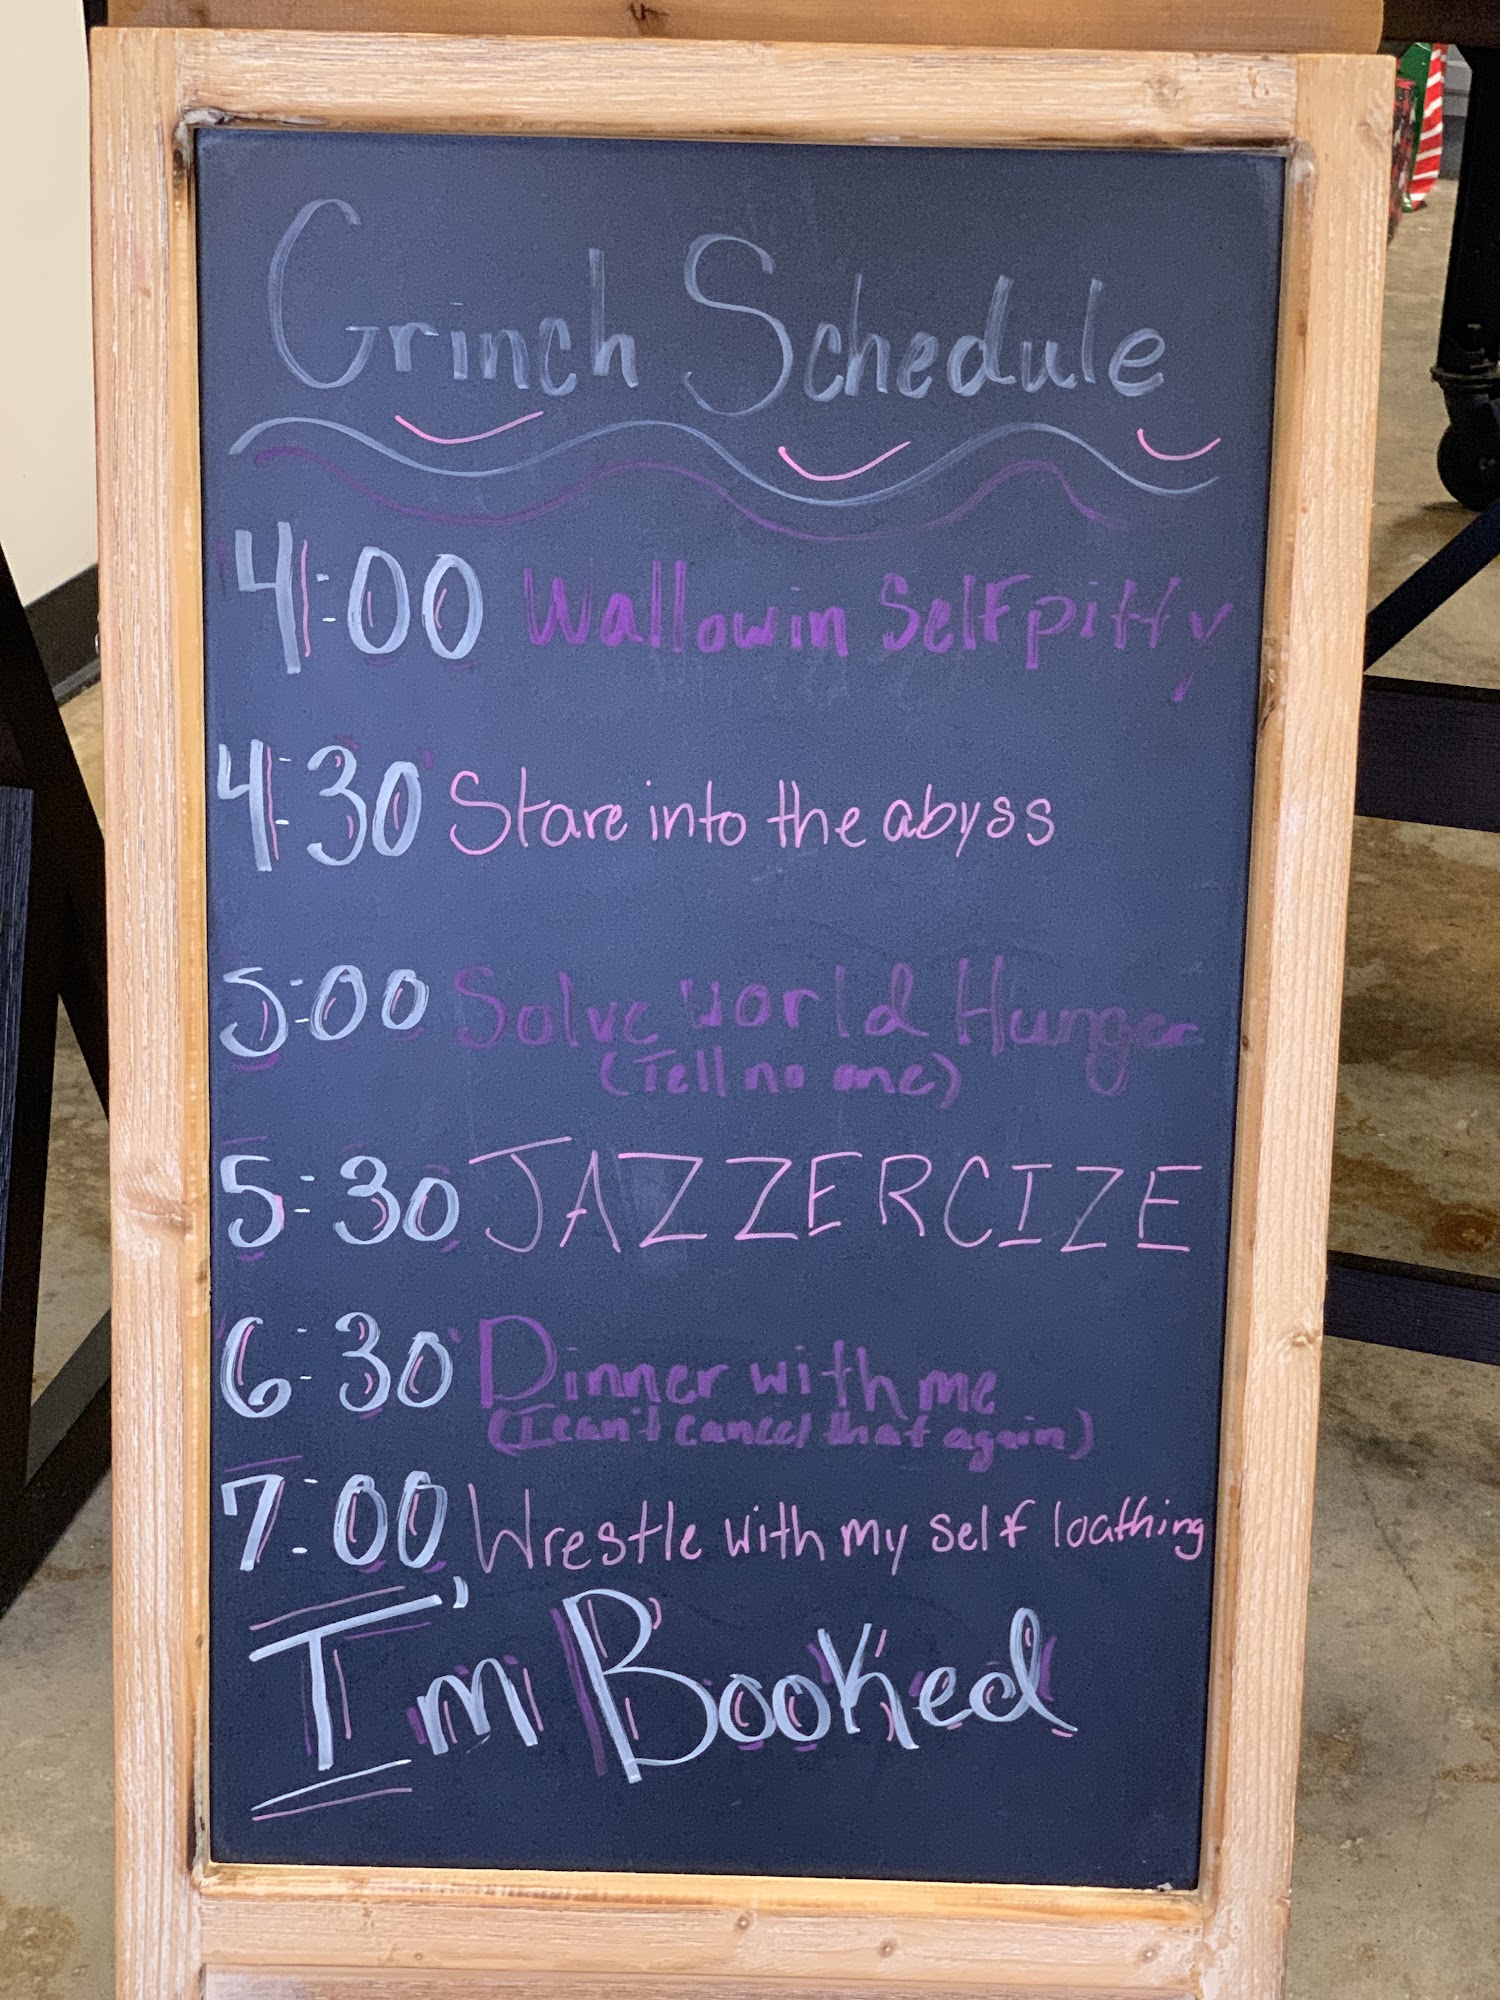 Grinch Schedule
4:00 Wallowin Self pitty
4:30 Stare into the abyss
5:00 Solve world Hunger
(Tell no one)
5:30 JAZZERCIZE
6:30 Dinner with me
(I can't cancel that again)
7:00 Wrestle with my self loathing
I'm Booked